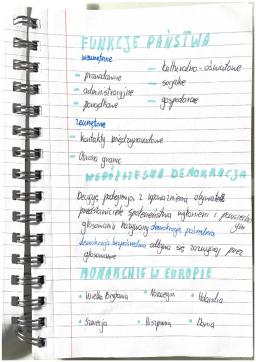 FUNKCJE PAŃSTWA
wewnętrzne
- prawodawcza - kulturalno - oświatowe
- administracyjna - socjalne
- porządkowe - gospodarcze
zewnętrzne
- kontakty międzynarodowe
- Obrona granic
WSPÓŁCZESNA DEMOKRACJA
Decyzje podejmują z upoważnienia obywateli
przedstawiciele społeczeństwa wyłonieni w powszechnym
głosowaniu nazywamy demokracją pośrednią
demokracja bezpośrednia odbywa się przez
głosowanie
MONARCHIE W EUROPIE
• Wielka Brytania • Norwegia • Holandia
• Szwecja • Hiszpania • Dania